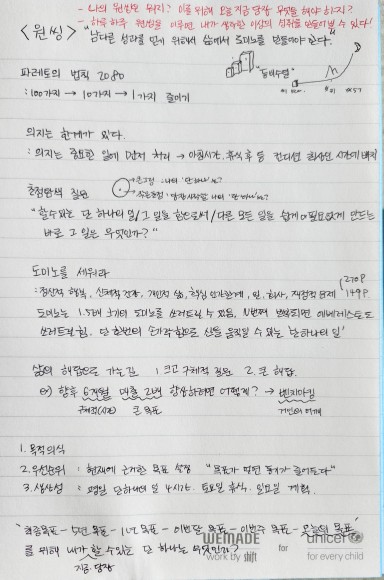 - 나의 원씽은 뭐지? 이를 위해 오늘 지금 당장 무엇을 해야 하지?
- 하루하루 원씽을 이루면 내가 생각한 이상의 성취를 만들어낼 수 있다!
<원씽> "남다른 성과를 얻기 위해서 삶에서 도미노를 만들어야 한다."
파레토의 법칙 2080
: 100가지 → 10가지 → 1가지 줄이기
의지는 한계가 있다.
: 의지는 중요한 일에 먼저 처리 → 아침시간, 휴식 후 등 컨디션 최상인 시간에 배치
초점탐색 질문
큰그림 : 나의 "단 하나"는?
작은초점 : 당장 시작할 나의 "단 하나"는?
"할 수 있는 단 하나의 일/그 일을 함으로써/다른 모든 일을 쉽게 or 필요없게 만드는
바로 그 일은 무엇인가?"
도미노를 세워라
: 정신적 행복, 신체적 건강, 개인적 삶, 핵심 인간관계, 일, 회사, 재정적 문제
270P
149P
도미노는 1.5배 크기의 도미노를 쓰러트릴 수 있음, N번째 반복되면 에베레스트도
쓰러트리힘. 단 한번의 손가락 힘으로 산을 움직일 수 있는 '단 하나의 일'
삶의 해답으로 가는 길 1. 크고 구체적 질문 2. 큰 해답.
ex) 향후 6개월 매출 2배 향상하려면 어떻게? → 벤치마킹
구체적(시간) 큰 목표 거인의 어깨
1. 목적의식
2. 우선순위 : 현재에 근거한 목표 설정 "목표가 멀면 동기가 줄어든다"
3. 생산성 : 평일 단 하나의 일 4시간. 토요일 휴식. 일요일 계획.
"최종목표 - 5년 목표 - 1년 목표 - 이번달 목표 - 이번주 목표 - 오늘의 목표"
를 위해 내가 할 수 있는 단 하나는 무엇인가?
지금 당장
WEMADE for unicef
work by shift for every child